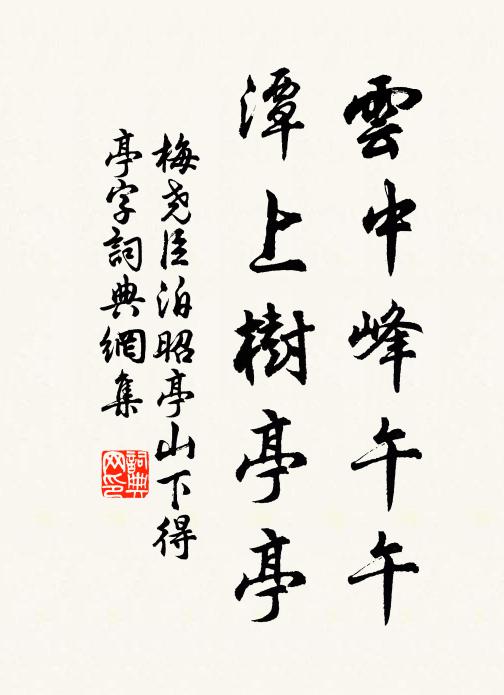 雲中峰午午
潭上樹亭亭
梅尧臣泊昭亭山下得
亭字詞典網集
詞典网印